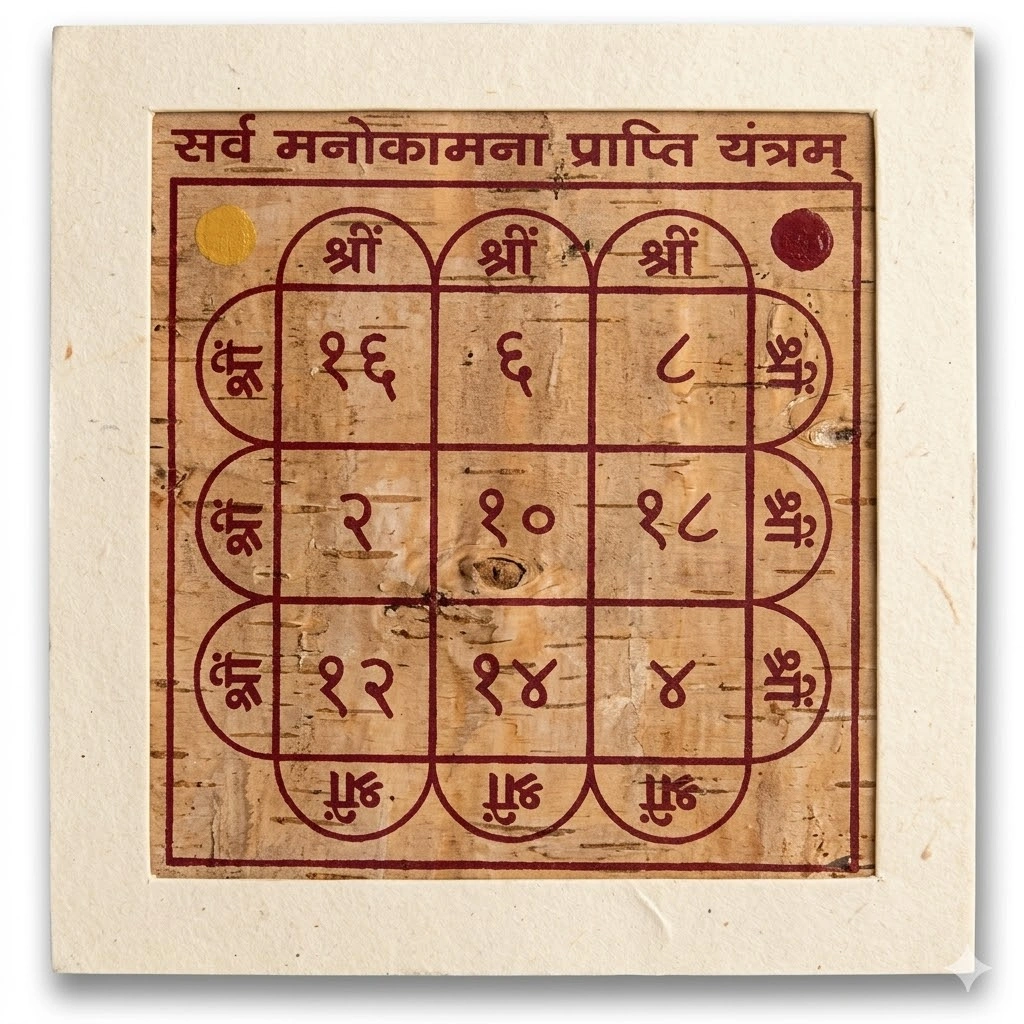 सर्व मनोकामना प्राप्ति यंत्रम्
श्रीं श्रीं श्रीं
श्रीं १६ ६ ८ श्रीं
श्रीं २ १० १८ श्रीं
श्रीं १२ १४ ४ श्रीं
श्रीं श्रीं श्रीं